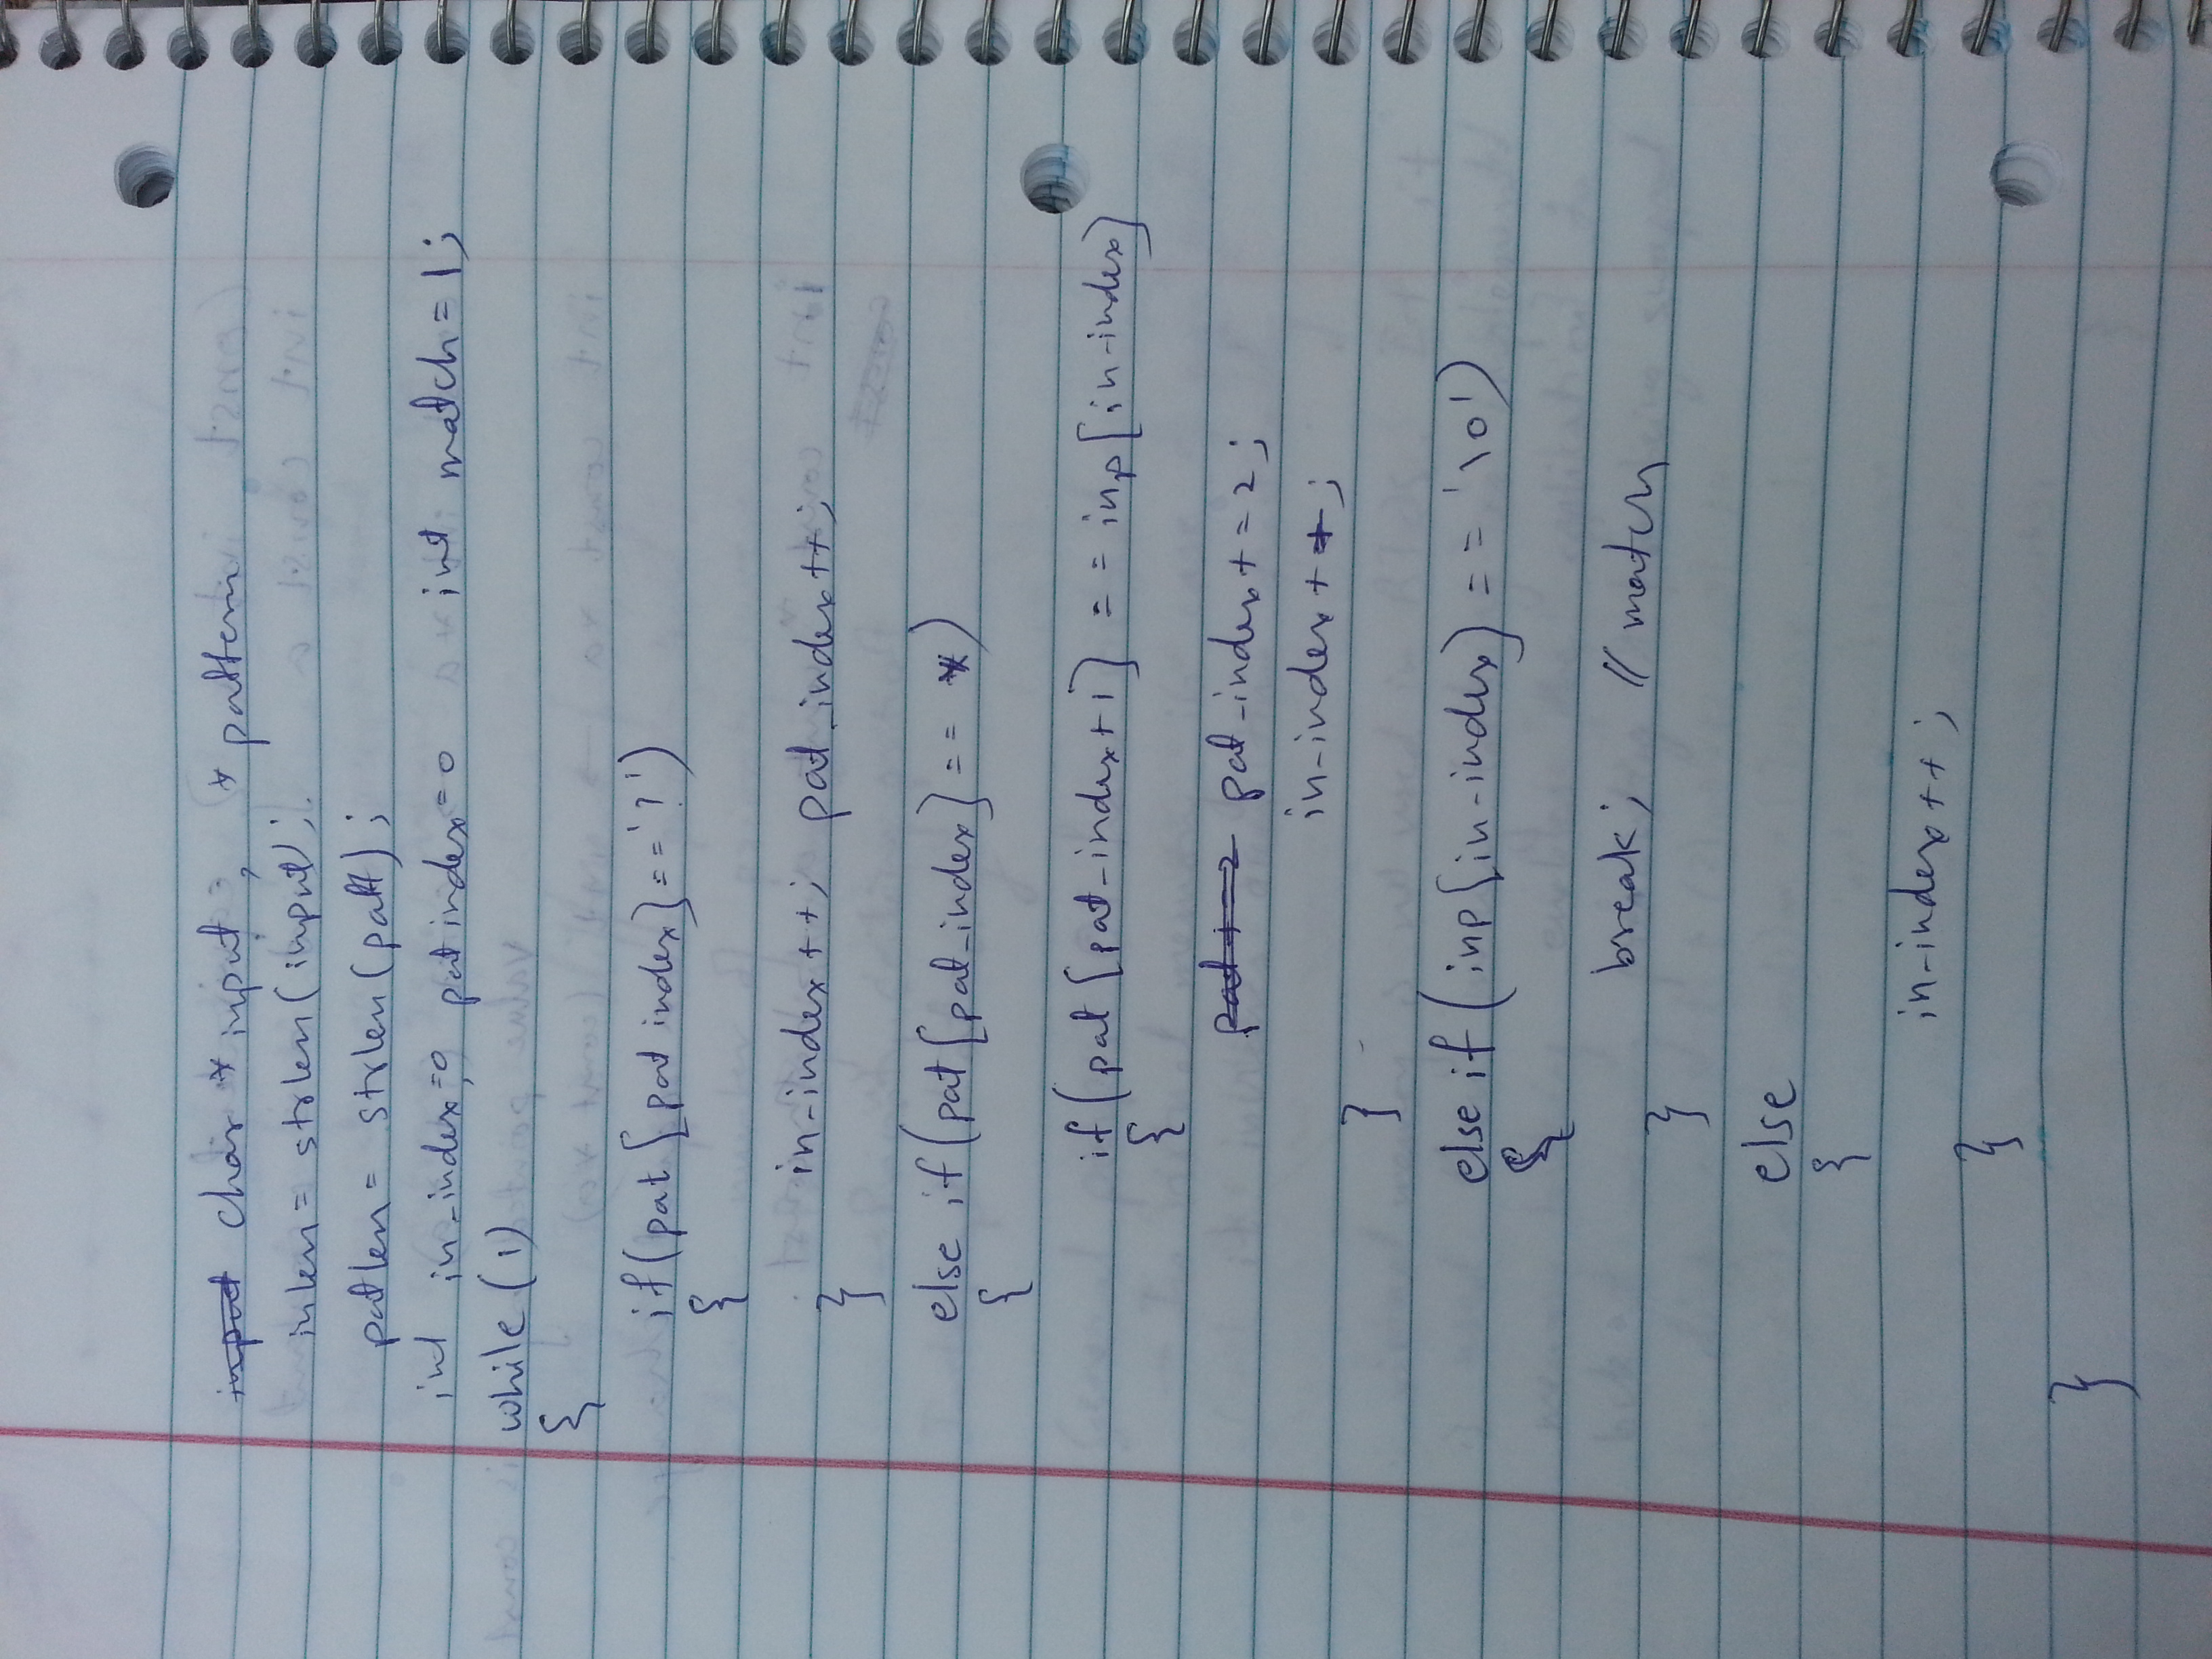 char * input, * pattern
inlen = strlen(input);
patlen = strlen(patt);
int in_index=0, patindex=0 int match = 1;
while (1)
{
if(pat[patindex]=='?')
{
in-index++; pat_index++;
}
else if(pat[pat-index]== *)
{
if(pat[pat-index+1] == inp[in-index]
{
pat-index+=2;
in-index++;
}
else if (inp[in-index] == '\0')
{
break; // match
}
else
{
in-index++;
}
}